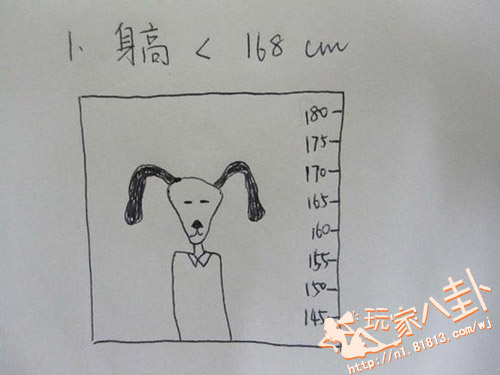 1. 身高 < 168 cm
180
175
170
165
160
155
150
145
玩家八卦
http://n1.81813.com/wj